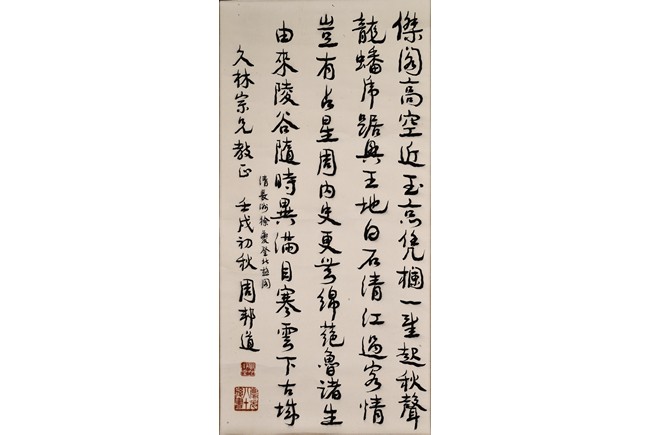 傑閣高空近玉京凭欄一望起秋聲
龍蟠虎踞興王地白石清紅過客情
豈有占星周內史更無綿蕝魯諸生
由來陵谷隨時異滿目寒雲下古城
清長洲徐夔登北極閣
久林宗兄教正 壬戌初秋周邦道